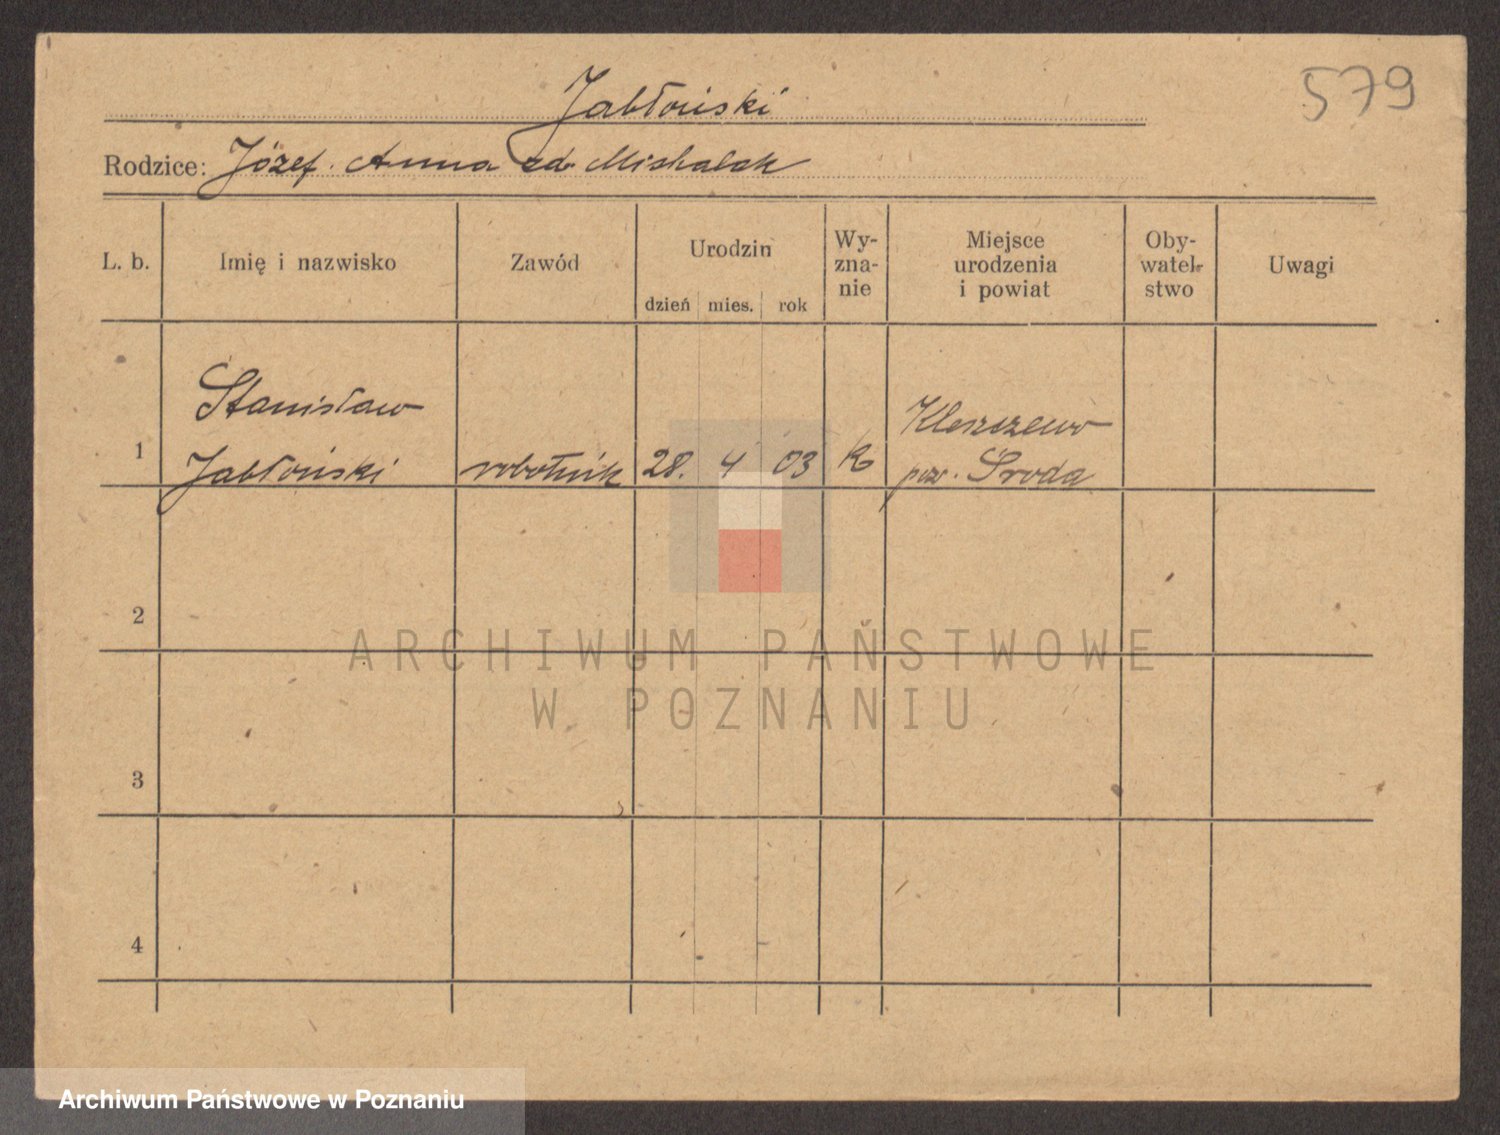 579
Jabłoński
Rodzice: Józef. Anna zd. Mishalak
L. b.
Imię i nazwisko
Zawód
Urodzin
dzień mies. rok
Wy-
zna-
nie
Miejsce
urodzenia
i powiat
Oby-
watel-
stwo
Uwagi
Stanisław
Kleszczewo
1 Jabłoński robotnik 28. 4 03 pow. Środa
2
3
4
ARCHIWUM PAŃSTWOWE
W POZNANIU
Archiwum Państwowe w Poznaniu